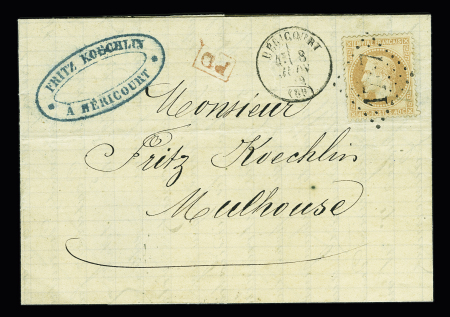 FRITZ KOECHLIN
A HÉRICOURT
PD
HÉRICOURT
8
Monsieur
Fritz Koechlin
Mulhouse